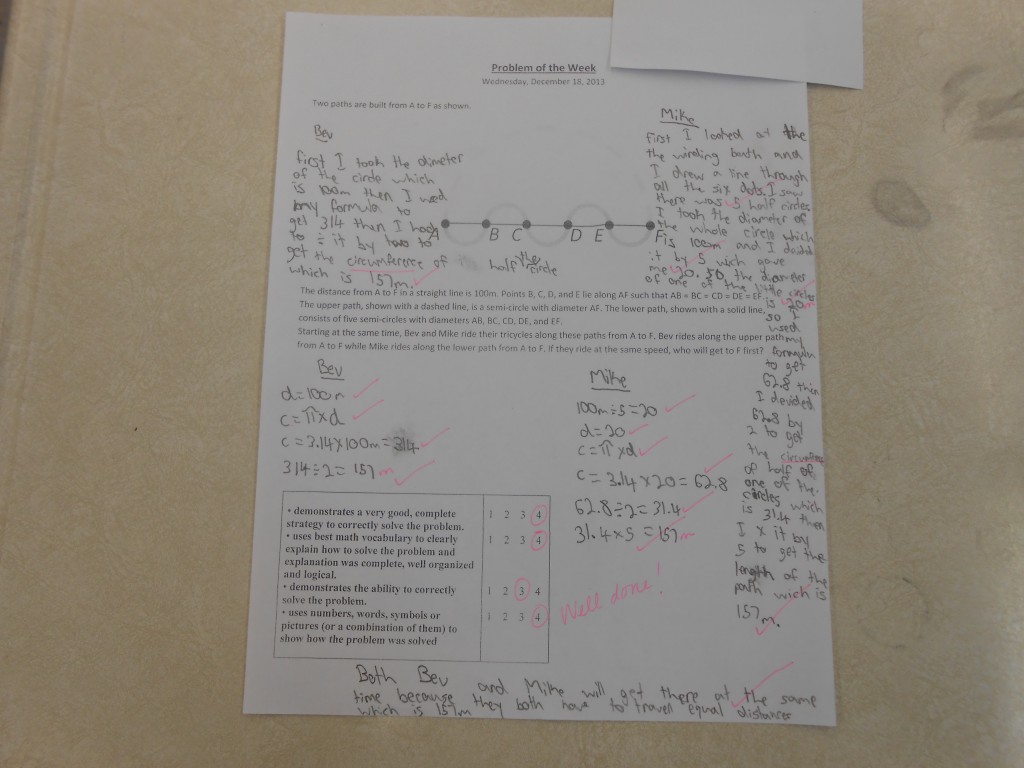 Problem of the Week
Wednesday, December 18, 2013
Two paths are built from A to F as shown.
Bev
first I took the dimeter
of the circle which
is 100m then I used
my formula to
get 314 then I had
to ÷ it by two to
get the circumference of half the circle
which is 157m.
A B C D E F
Mike
First I looked at the
the winding path and
I drew a line through
all the six dots. I saw
there was 5 half circles
I took the diameter of
the whole circle which
is 100m and I
it by 5 wich gave
me 20. So, the diameter
of one of the little circles
is 20m
so I
used
my
formula
to get
62.8 then
I devided
62.8 by
2 to get
the
of half of
one of the
circles which
is 31.4 then
I x it by
5 to get the
length of the
path wich is
157m.
The distance from A to F in a straight line is 100m. Points B, C, D, and E lie along AF such that AB = BC = CD = DE = EF.
The upper path, shown with a dashed line, is a semi-circle with diameter AF. The lower path, shown with a solid line,
consists of five semi-circles with diameters AB, BC, CD, DE, and EF.
Starting at the same time, Bev and Mike ride their tricycles along these paths from A to F. Bev rides along the upper path
from A to F while Mike rides along the lower path from A to F. If they ride at the same speed, who will get to F first?
Bev
d=100m
c=πxd
c=3.14x100m=314
314÷2=157m
Mike
100m÷5=20
d=20
c=πxd
c=3.14x20=62.8
62.8÷2=31.4
31.4x5=157m
• demonstrates a very good, complete
strategy to correctly solve the problem.
1 2 3 4
• uses best math vocabulary to clearly
explain how to solve the problem and
explanation was complete, well organized
and logical.
1 2 3 4
• demonstrates the ability to correctly
solve the problem.
1 2 3 4
• uses numbers, words, symbols or
pictures (or a combination of them) to
show how the problem was solved
1 2 3 4
Well done!
Both Bev and Mike will get there at the same
time because they both have to travel equal distances
which is 157m